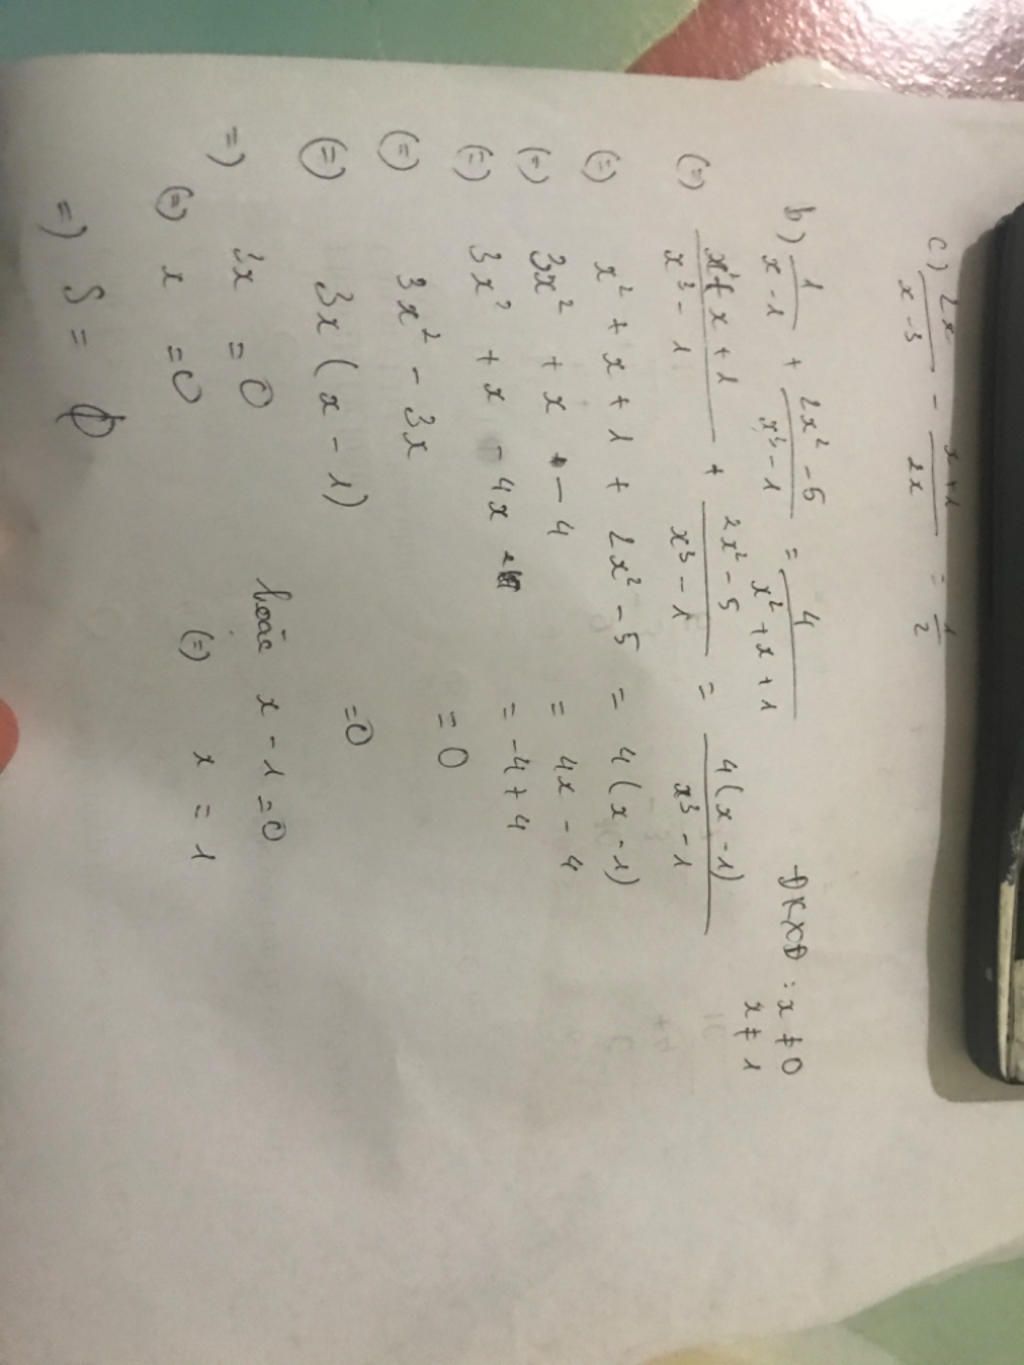 c) 2x/(x-3) - (x+1)/2x = 1/2
b) 1/(x-1) + (2x²-5)/(x³-1) = 4/(x²+x+1) ĐKXĐ: x ≠ 0
x ≠ 1
(=) (x²+x+1)/(x³-1) + (2x²-5)/(x³-1) = 4(x-1)/(x³-1)
(=) x² + x + 1 + 2x² - 5 = 4(x-1)
(=) 3x² + x - 4 = 4x - 4
(=) 3x² + x - 4x = -4 + 4
(=) 3x² - 3x = 0
(=) 3x(x - 1) = 0
=) 3x = 0 hoặc x - 1 = 0
(=) x = 0 (=) x = 1
=) S = ∅